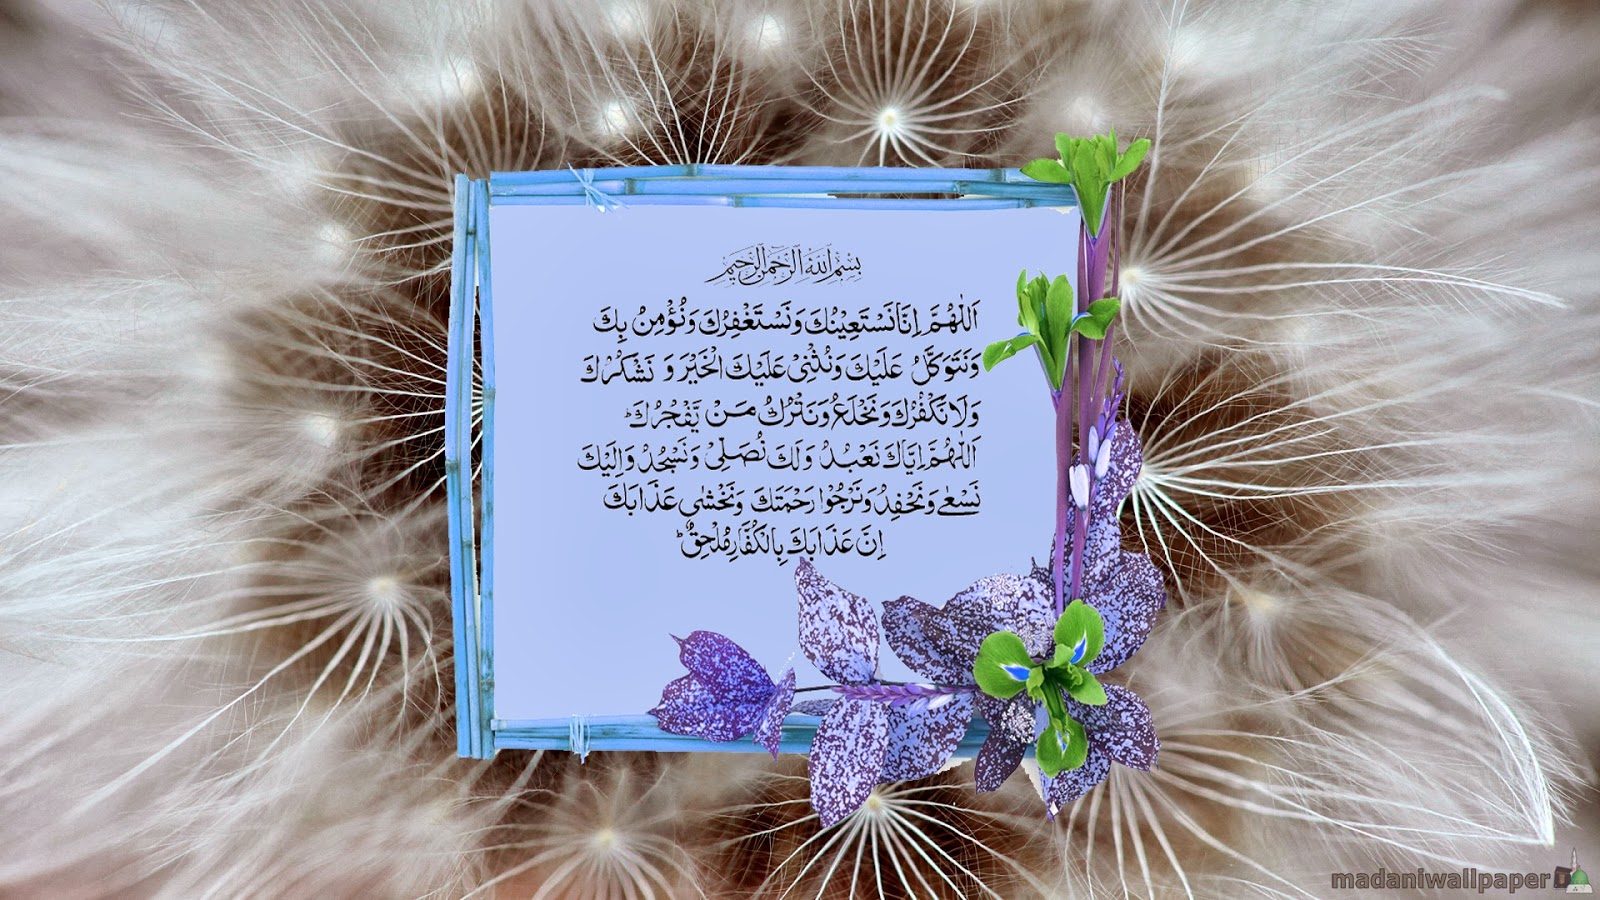 بِسْمِ اللهِ الرَّحْمٰنِ الرَّحِيْمِ
اَللّٰهُمَّ اِنَّا نَسْتَعِيْنُكَ وَنَسْتَغْفِرُكَ وَنُؤْمِنُ بِكَ
وَنَتَوَكَّلُ عَلَيْكَ وَنُثْنِيْ عَلَيْكَ الْخَيْرَ وَ نَشْكُرُكَ
وَلَا نَكْفُرُكَ وَنَخْلَعُ وَنَتْرُكُ مَنْ يَّفْجُرُكَ ؕ
اَللّٰهُمَّ اِيَّاكَ نَعْبُدُ وَلَكَ نُصَلِّيْ وَنَسْجُدُ وَاِلَيْكَ
نَسْعٰى وَنَحْفِدُ وَنَرْجُوْا رَحْمَتَكَ وَنَخْشٰى عَذَابَكَ
اِنَّ عَذَابَكَ بِالْكُفَّارِ مُلْحِقٌ ؕ
madaniwallpaper